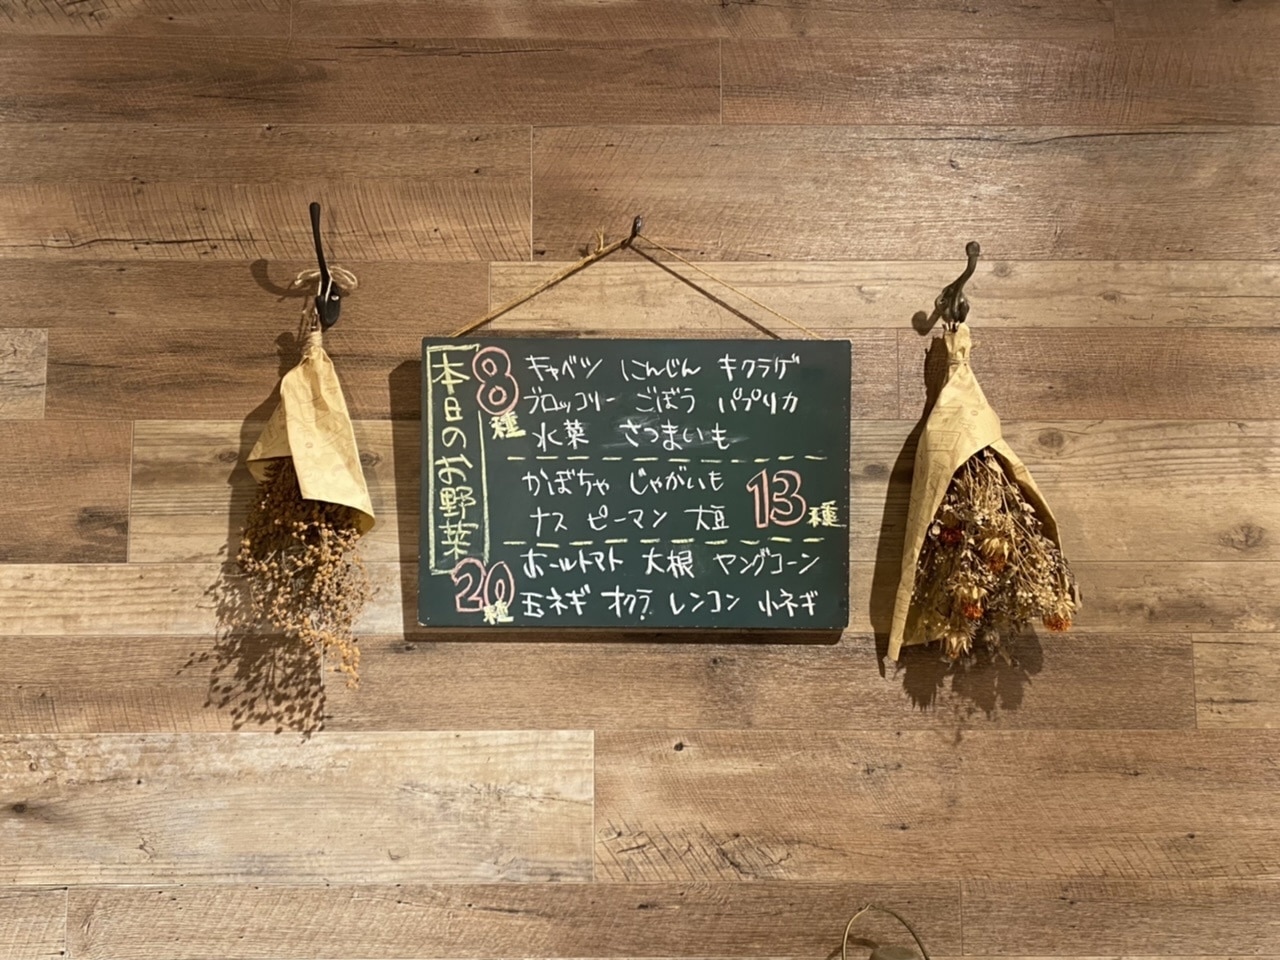 本日のお野菜
8種
キャベツ にんじん キクラゲ
ブロッコリー ごぼう パプリカ
水菜 さつまいも
かぼちゃ じゃがいも
13種
ナス ピーマン 大豆
20種
ホールトマト 大根 ヤングコーン
玉ネギ オクラ レンコン 小ネギ